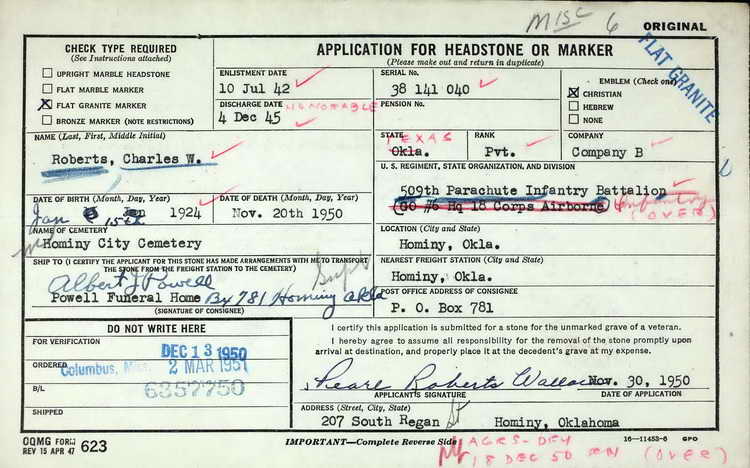 Misc 6
ORIGINAL
CHECK TYPE REQUIRED
(See Instructions attached)
UPRIGHT MARBLE HEADSTONE
FLAT MARBLE MARKER
X FLAT GRANITE MARKER
BRONZE MARKER (NOTE RESTRICTIONS)
APPLICATION FOR HEADSTONE OR MARKER
(Please make out and return in duplicate)
ENLISTMENT DATE
10 Jul 42
DISCHARGE DATE HONORABLE
4 Dec 45
SERIAL NO.
38 141 040
PENSION NO.
EMBLEM (Check one)
X CHRISTIAN
HEBREW
NONE
FLAT GRANITE
NAME (Last, First, Middle Initial)
Roberts, Charles W.
STATE TEXAS
Okla.
RANK
Pvt.
COMPANY
Company B
U. S. REGIMENT, STATE ORGANIZATION, AND DIVISION
509th Parachute Infantry Battalion
(GO #6 Hq 18 Corps Airborne) Infantry
(OVER)
DATE OF BIRTH (Month, Day, Year)
Jan 15th Jan 1924
DATE OF DEATH (Month, Day, Year)
Nov. 20th 1950
NAME OF CEMETERY
Hominy City Cemetery
LOCATION (City and State)
Hominy, Okla.
SHIP TO (I CERTIFY THE APPLICANT FOR THIS STONE HAS MADE ARRANGEMENTS WITH ME TO TRANSPORT
THE STONE FROM THE FREIGHT STATION TO THE CEMETERY)
Albert J Powell Supt
Powell Funeral Home Bx 781 Hominy Okla
(SIGNATURE OF CONSIGNEE)
NEAREST FREIGHT STATION (City and State)
Hominy, Okla.
POST OFFICE ADDRESS OF CONSIGNEE
P. O. Box 781
DO NOT WRITE HERE
FOR VERIFICATION
DEC 13 1950
ORDERED
Columbus, Miss. 2 MAR 1951
B/L
6357750
SHIPPED
I certify this application is submitted for a stone for the unmarked grave of a veteran.
I hereby agree to assume all responsibility for the removal of the stone promptly upon
arrival at destination, and properly place it at the decedent's grave at my expense.
Pearl Roberts Wallace Nov. 30, 1950
APPLICANT'S SIGNATURE
DATE OF APPLICATION
ADDRESS (Street, City, State)
207 South Regan St Hominy, Oklahoma
OQMG FORM
REV 15 APR 47 623
IMPORTANT—Complete Reverse Side
16—11453-6 GPO
AGRS-DEY
18 DEC 50 (OVER)